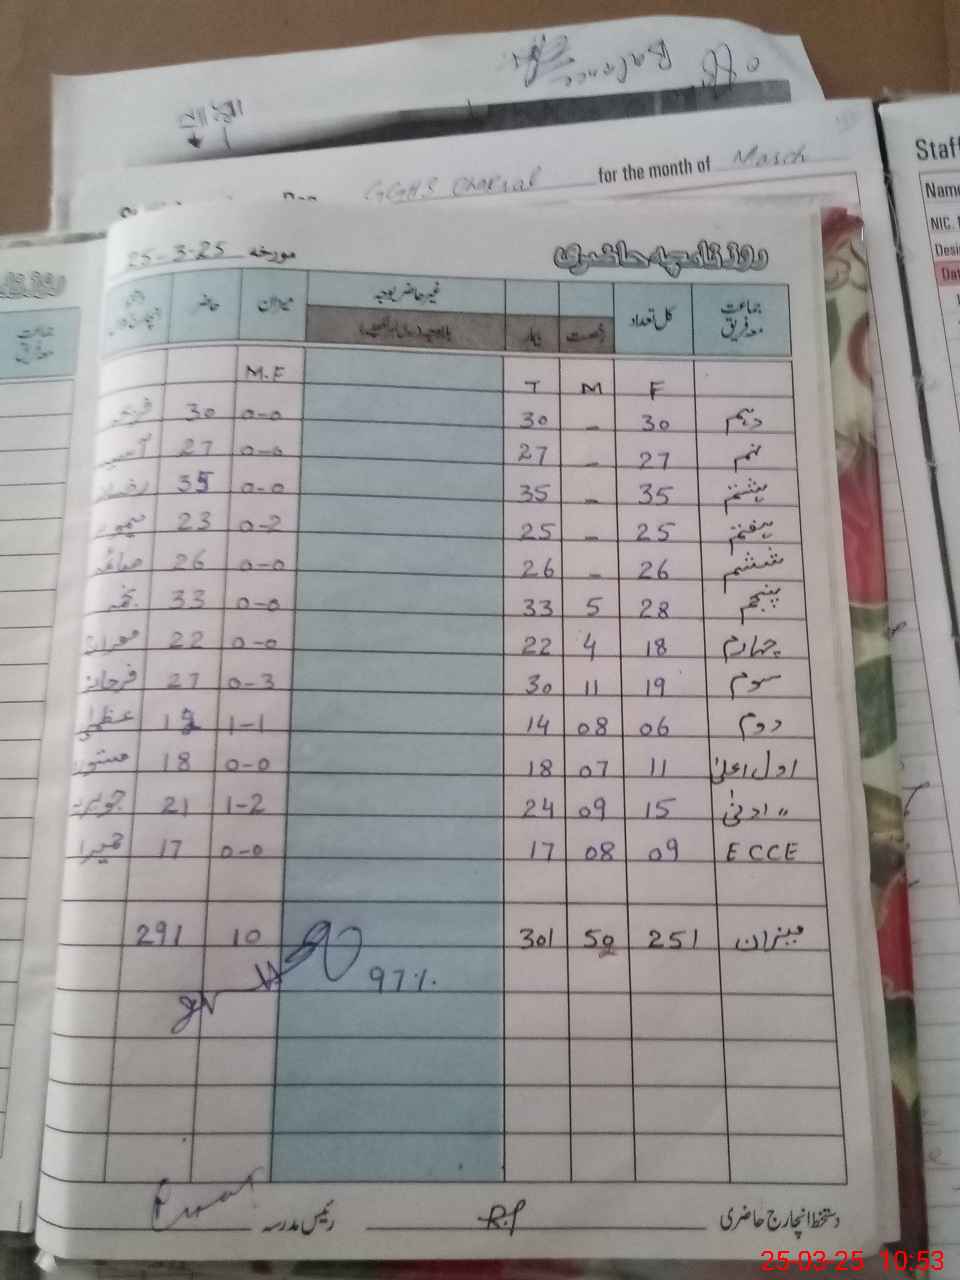 Balance
for the month of March
GGHS Chakral
Staff
Name
NIC.
Desi
Dat
روزنامچہ حاضری
مورخہ 25-3-25
جماعت معہ فریق کل تعداد رخصت بیمار غیر حاضر بوجہ میزان حاضر
F M T M.F
دہم 30 - 30 0-0 30
نہم 27 - 27 0-0 27
ہشتم 35 - 35 0-0 35
ہفتم 25 - 25 0-2 23
ششم 26 - 26 0-0 26 صائمہ
پنجم 28 5 33 0-0 33 نجمہ
چہارم 18 4 22 0-0 22
سوم 19 11 30 0-3 27 فرحانہ
دوم 06 08 14 1-1 12 عظمیٰ
اول اعلیٰ 11 07 18 0-0 18
〃 ادنیٰ 15 09 24 1-2 21 جویریہ
ECCE 09 08 17 0-0 17 حمیرا
میزان 251 50 301 10 291
97%
دستخط انچارج حاضری R.P رئیس مدرسہ
25-03-25 10:53